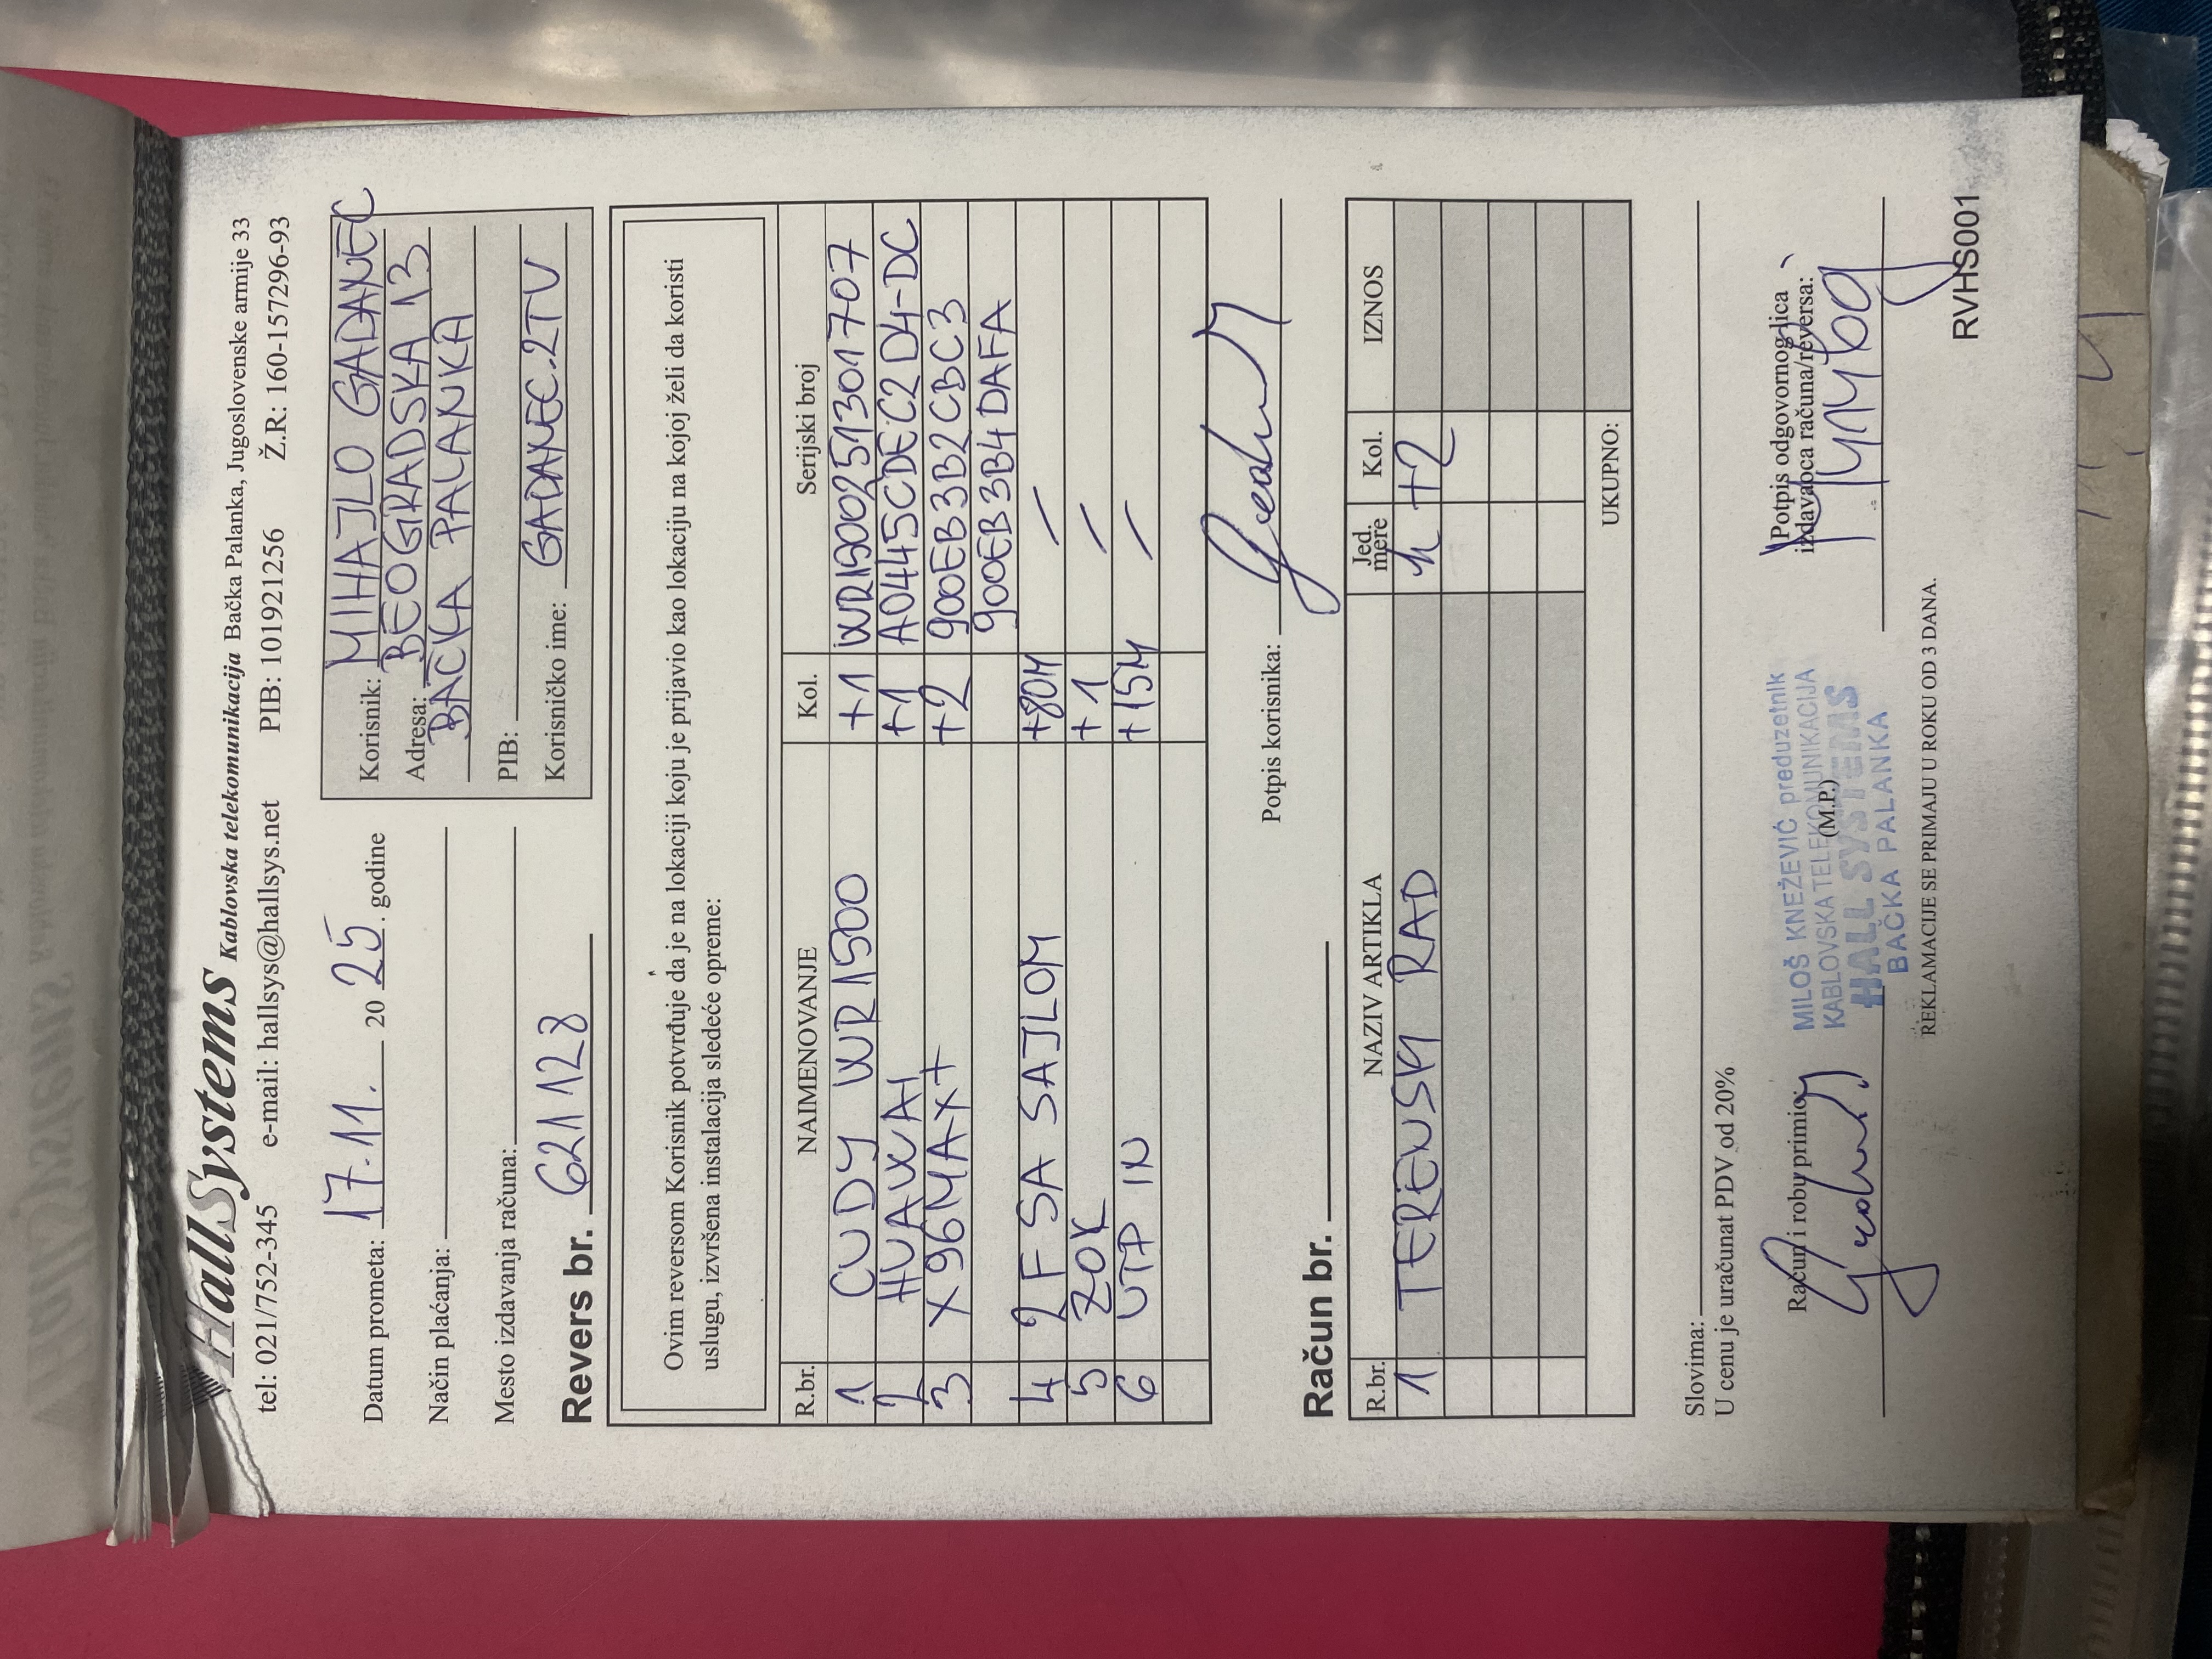 HallSystems Kablovska telekomunikacija Bačka Palanka, Jugoslovenske armije 33
tel: 021/752-345 e-mail: hallsys@hallsys.net PIB: 101921256 Ž.R: 160-157296-93
Datum prometa: 17.11. 20 25. godine
Način plaćanja:
Mesto izdavanja računa:
Revers br. 621128
Korisnik: MIHAJLO GADANEC
Adresa: BEOGRADSKA 13
BAČKA PALANKA
PIB:
Korisničko ime: GADANEC.2TV
Ovim reversom Korisnik potvrđuje da je na lokaciji koju je prijavio kao lokaciju na kojoj želi da koristi
uslugu, izvršena instalacija sledeće opreme:
R.br. NAIMENOVANJE Kol. Serijski broj
1 CUDY WR1500 +1 WR1500251301707
2 HUAWAI +1 A0445CDEC2D4-DC
3 X96MAX+ +2 900EB3B2CBC3
900EB3B4DAFA
4 2F SA SAJLOM +80M /
5 ZOK +1 /
6 UTP IN +15M /
Potpis korisnika:
Račun br.
R.br. NAZIV ARTIKLA Jed. mere Kol. IZNOS
1 TERENSKI RAD h +2
UKUPNO:
Slovima:
U cenu je uračunat PDV od 20%
Račun i robu primio:
MILOŠ KNEŽEVIĆ preduzetnik
KABLOVSKA TELEKOMUNIKACIJA
(M.P.)
HALL SYSTEMS
BAČKA PALANKA
Potpis odgovornog lica
izdavaoca računa/reversa:
REKLAMACIJE SE PRIMAJU U ROKU OD 3 DANA.
RVHS001